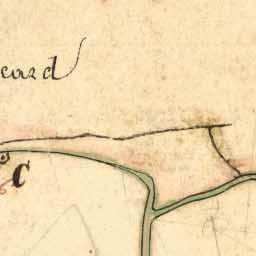 eard
C